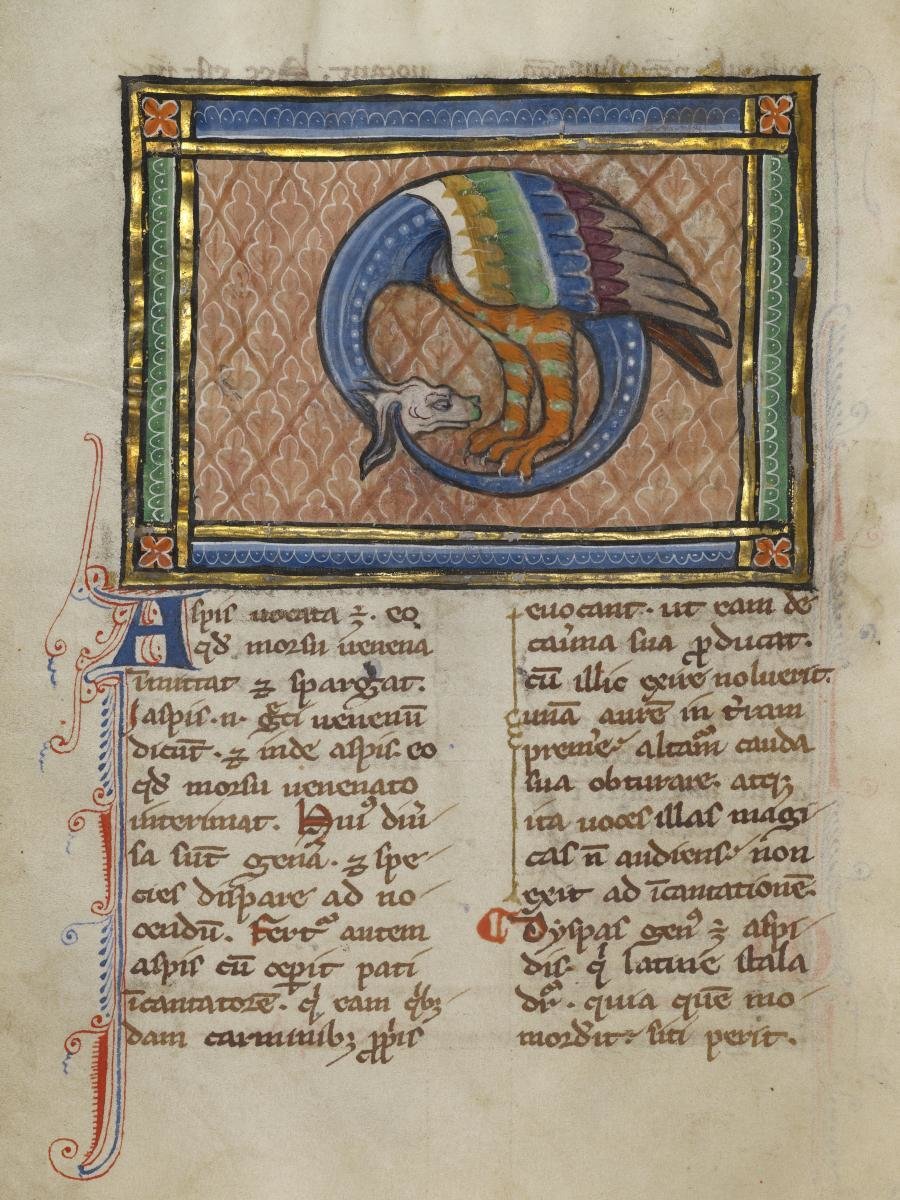 Aspis uocata ⁊. eo
qd̓ morsu uenena
īmittat ⁊ spargat.
Iaspis .n. gͥci uenenū
dicūt. ⁊ inde aspis. eo
qd̓ morsu uenenato
interimat. Huiꝰ diu̓
sa sūt gen̓a. ⁊ spe
cies dispare ad no
cendū. Fertᷣ autem
aspis cū ceꝑit pati
īcantatorē. qͥ eam qͥbꝫ
dam carminibꝫ ꝓpͥis
euocant. ut eam de
cau̓na sua ꝓducat.
cū illic exire noluerit.
unā aurē in t̓ram
prem̓e. altam̄ cauda
sua obturare. atqꝫ
ita uoces illas magi
cas n̄ audiens. non
exit ad īcantationē.
Dyspas genꝰ ⁊ aspi
dis. qͥ latine stala
drᷣ. quia quē mo
mord̓it. siti perit.